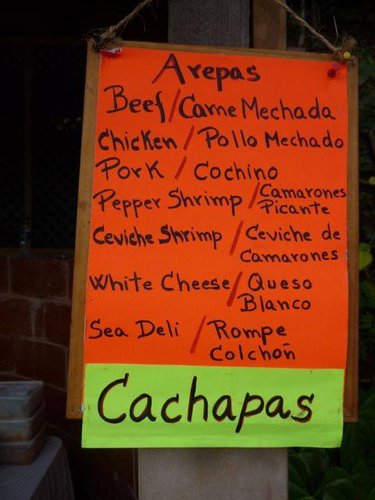 Arepas
Beef / Carne Mechada
Chicken / Pollo Mechado
Pork / Cochino
Pepper Shrimp / Camarones
Picante
Ceviche Shrimp / Ceviche de
Camarones
White Cheese / Queso
Blanco
Sea Deli / Rompe
Colchoñ
Cachapas